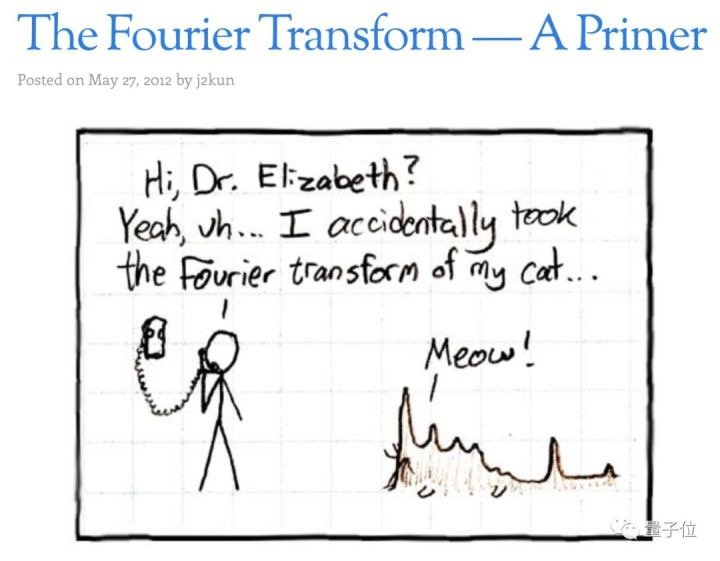 The Fourier Transform — A Primer
Posted on May 27, 2012 by j2kun
Hi, Dr. Elizabeth?
Yeah, uh... I accidentally took
the Fourier transform of my cat...
Meow!
量子位